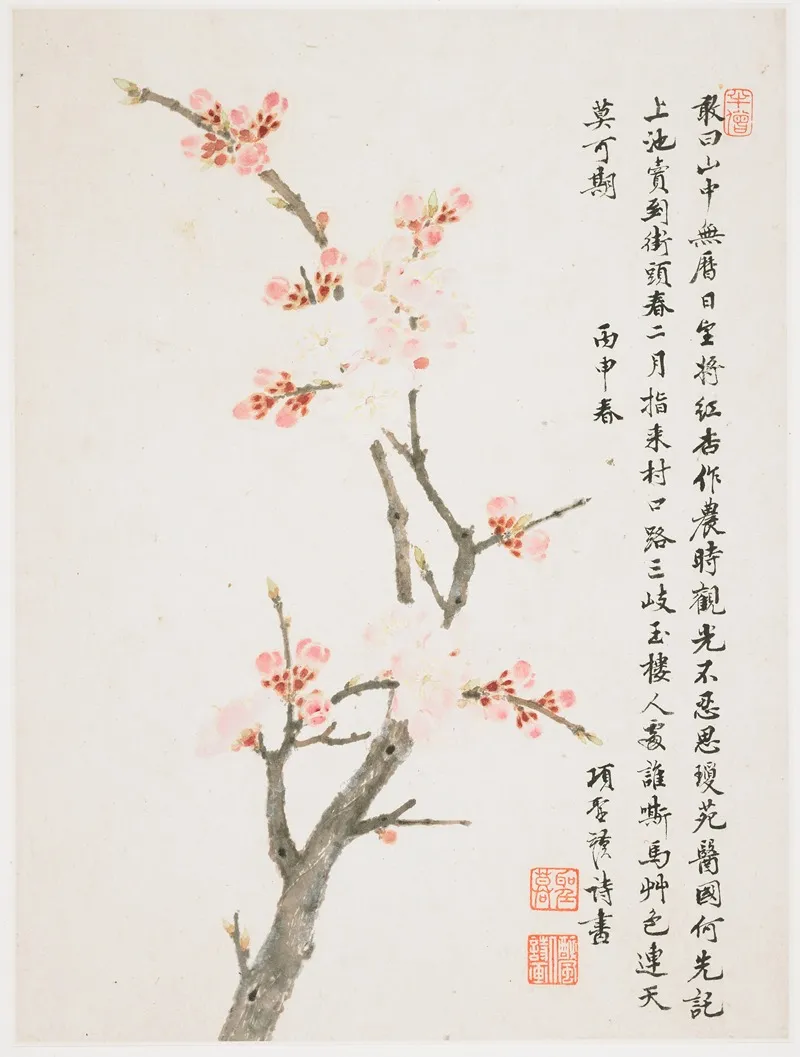 敢曰山中無曆日空將紅杏作農時觀光不忍思瓊苑醫國何先託
上池賣到街頭春二月指来村口路三岐玉樓人誰嘶馬艸色連天
莫可期 丙申春 項聖謨詩書